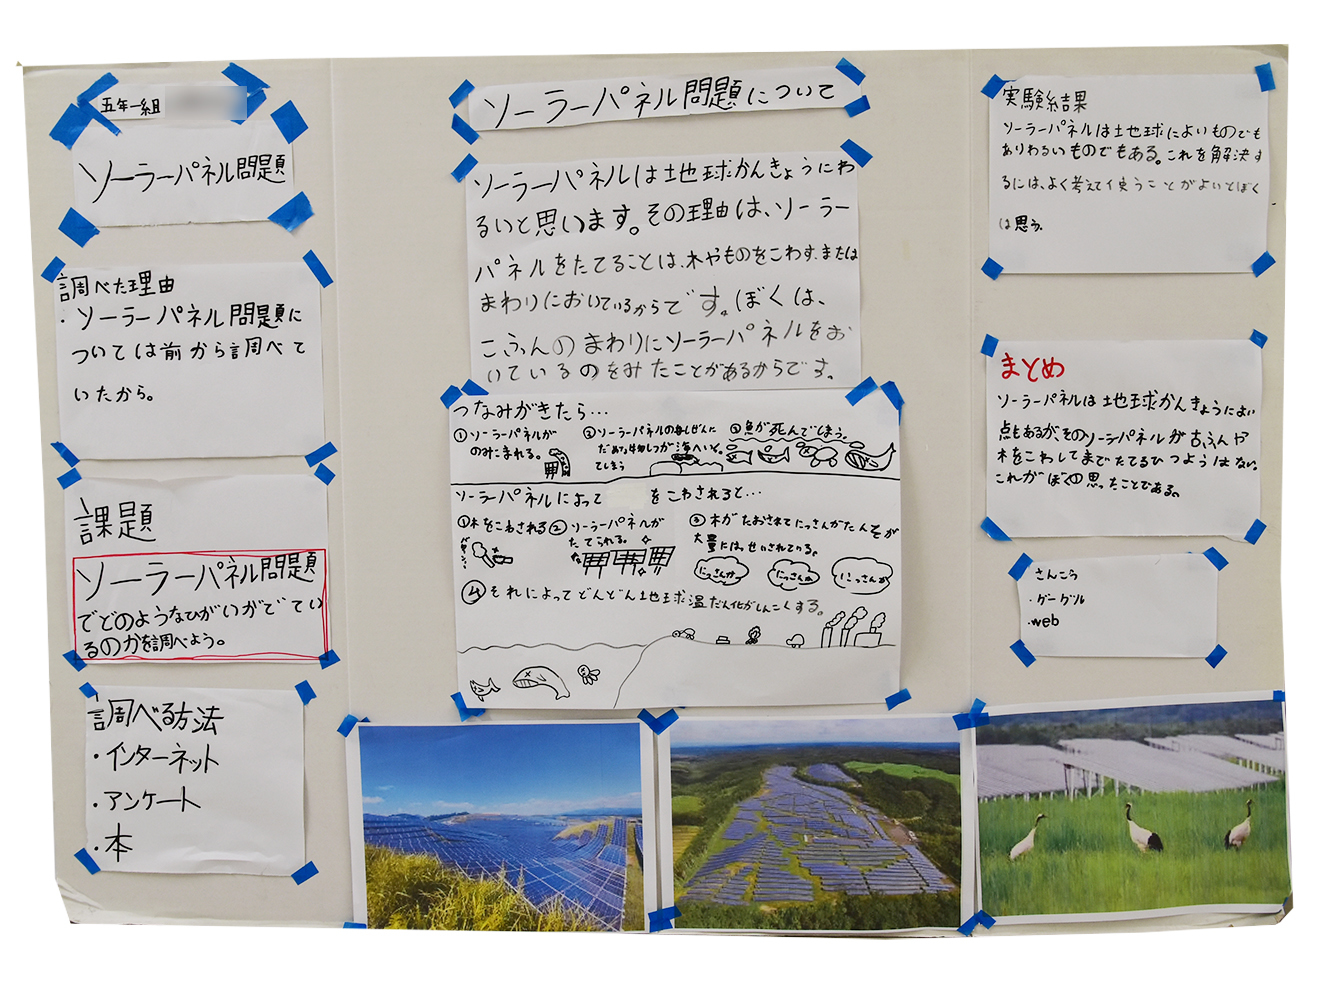 五年一組
ソーラーパネル問題
調べた理由
・ソーラーパネル問題に
ついては前から調べて
いたから。
課題
ソーラーパネル問題
でどのようなひがいがでてい
るのかを調べよう。
調べる方法
・インターネット
・アンケート
・本
ソーラーパネル問題について
ソーラーパネルは地球かんきょうにわ
るいと思います。その理由は、ソーラー
パネルをたてることは、木やものをこわす、または
まわりにおいているからです。ぼくは、
こふんのまわりにソーラーパネルをお
いているのをみたことがあるからです。
つなみがきたら…
①ソーラーパネルが
のみこまれる。
②ソーラーパネルの
海へいっ
てしまう
③魚が死んでしまう。
ソーラーパネルによって
をこわされると…
①木をこわされる
②ソーラーパネルが
たてられる。
③木がたおされてにっさんかたんそが
大量にはっせいされている。
にっさんか
にっさんか
にっさんか
④それによってどんどん地球温だん化がしんこくする。
実験結果
ソーラーパネルは土也球によいものでも
ありわるいものでもある。これを解決す
るには、よく考えて使うことがよいとぼく
は思う。
まとめ
ソーラーパネルは地球かんきょうによい
点もあるが、そのソーラーパネルが古ふんや
木をこわしてまでたてるひつようはない。
これがぼくの思ったことである。
さんこう
・グーグル
・web